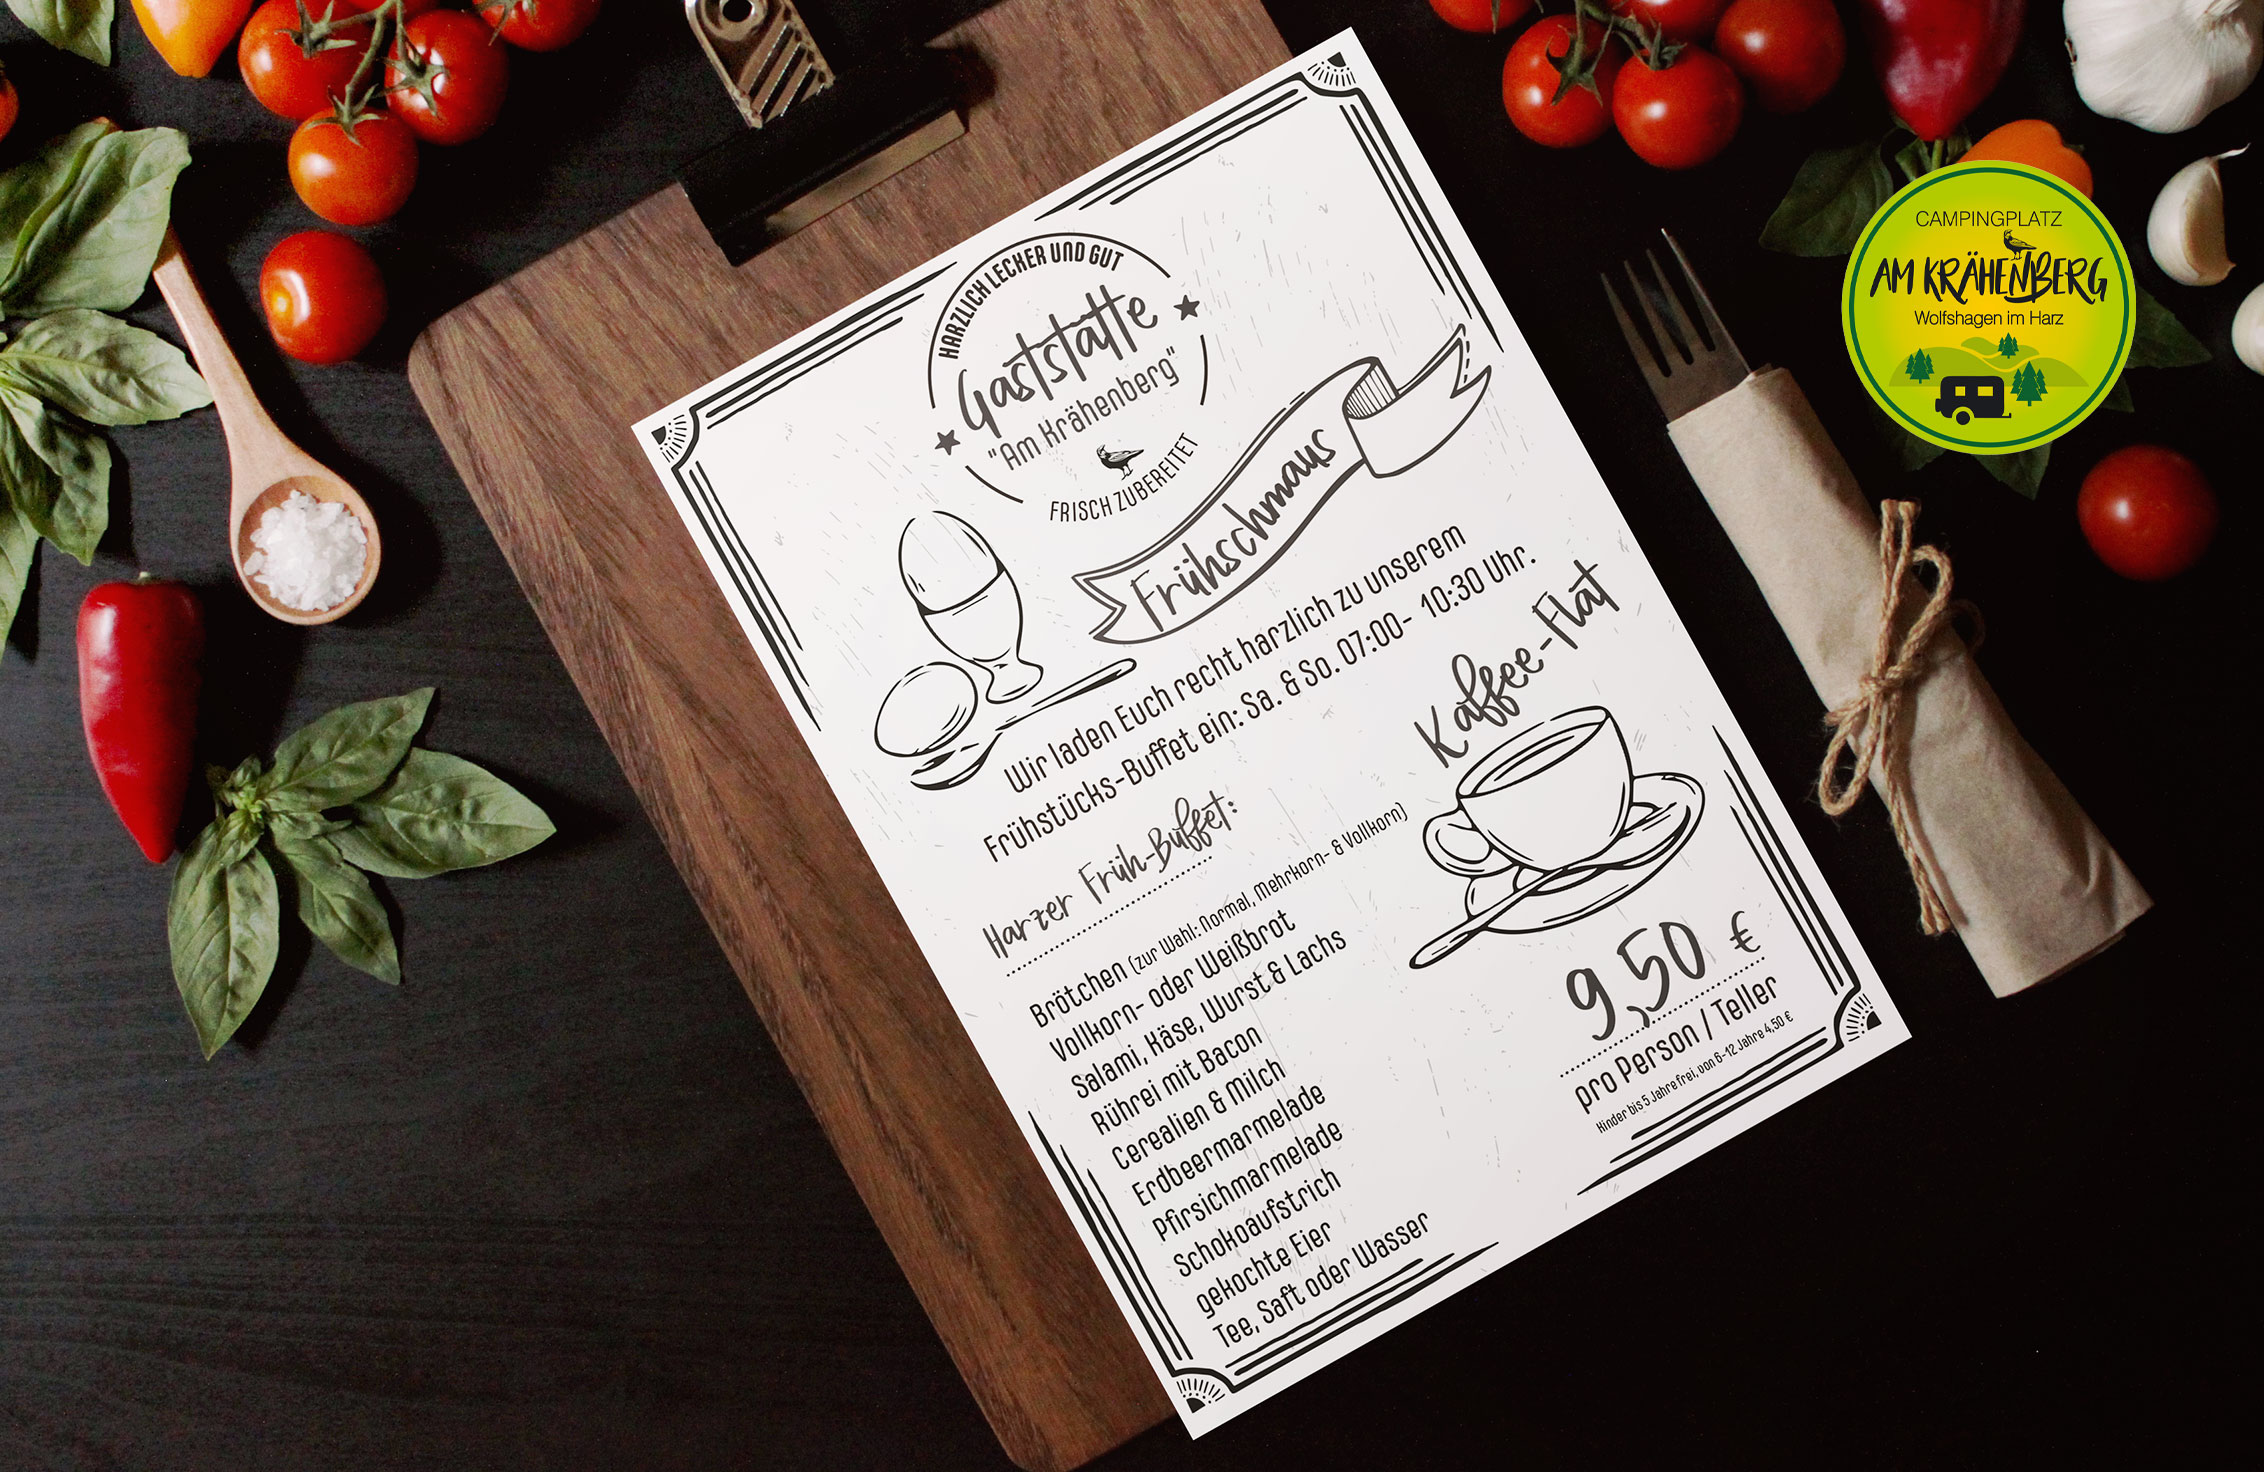 HARZLICH LECKER UND GUT
Gaststätte
"Am Krähenberg"
FRISCH ZUBEREITET
Frühschmaus
Wir laden Euch recht harzlich zu unserem
Frühstücks-Buffet ein: Sa. & So. 07:00- 10:30 Uhr.
Kaffee-Flat
Harzer Früh-Buffet:
Brötchen (zur Wahl: Normal, Mehrkorn- & Vollkorn)
Vollkorn- oder Weißbrot
Salami, Käse, Wurst & Lachs
Rührei mit Bacon
Cerealien & Milch
Erdbeermarmelade
Pfirsichmarmelade
Schokoaufstrich
gekochte Eier
Tee, Saft oder Wasser
9,50 €
pro Person / Teller
Kinder bis 5 Jahre frei, von 6-12 Jahre 4,50 €
CAMPINGPLATZ
AM KRÄHENBERG
Wolfshagen im Harz